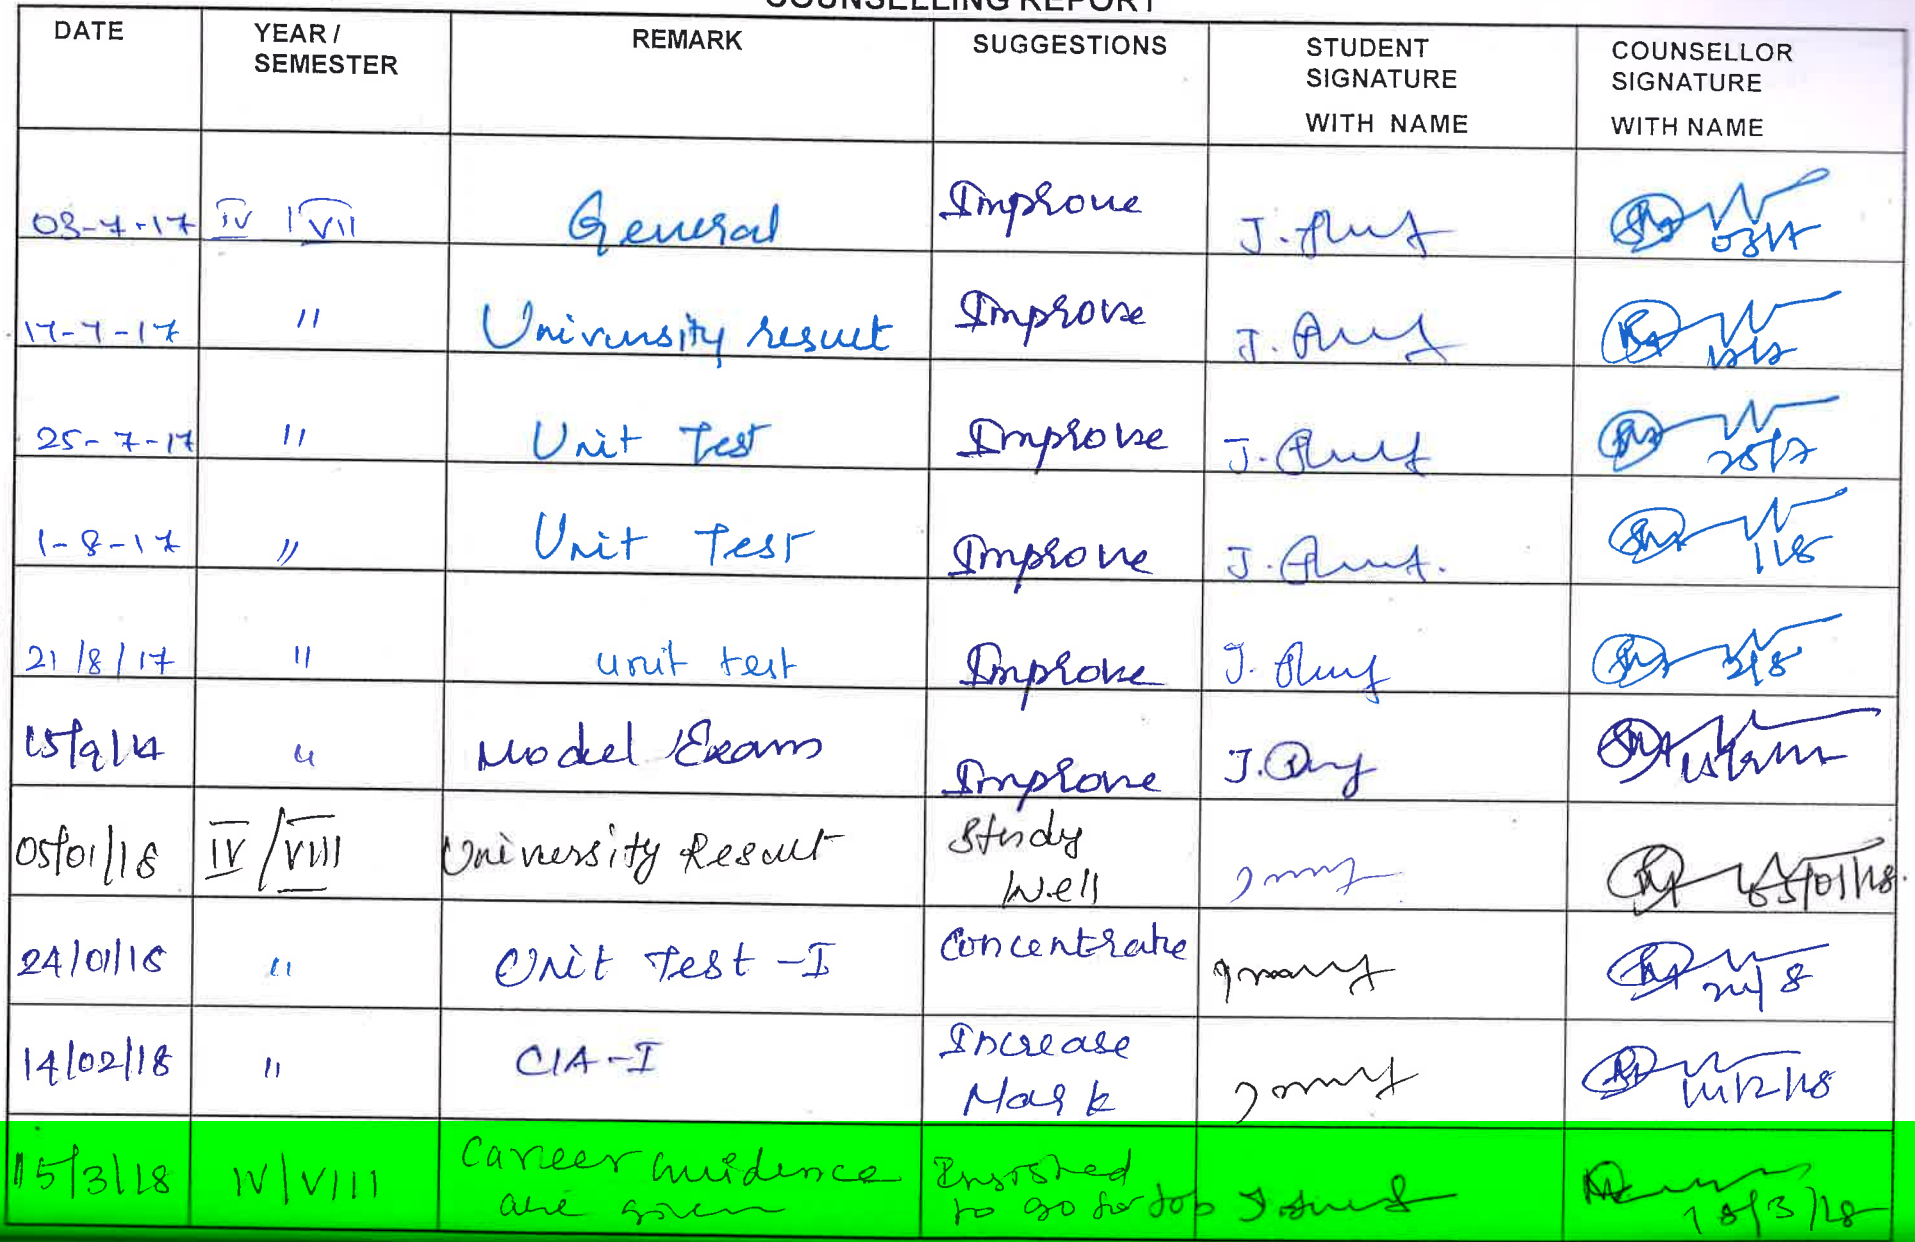 COUNSELLING REPORT
DATE YEAR / SEMESTER REMARK SUGGESTIONS STUDENT SIGNATURE WITH NAME COUNSELLOR SIGNATURE WITH NAME
03-7-17 IV | VII General Improve J. 03/7
17-7-17 " University result Improve J.
25-7-17 " Unit Test Improve J. 25/7
1-8-17 " Unit Test Improve J. 1/8
21/8/17 " unit test Improve J.
15/9/17 " Model Exams Improve J.
05/01/18 IV / VIII University Result Study Well 05/01/18.
24/01/18 " Unit Test - I Concentrate
14/02/18 " CIA - I Increase Mark
15/3/18 IV | VIII Career Guidence are given to go for Job 15/3/18